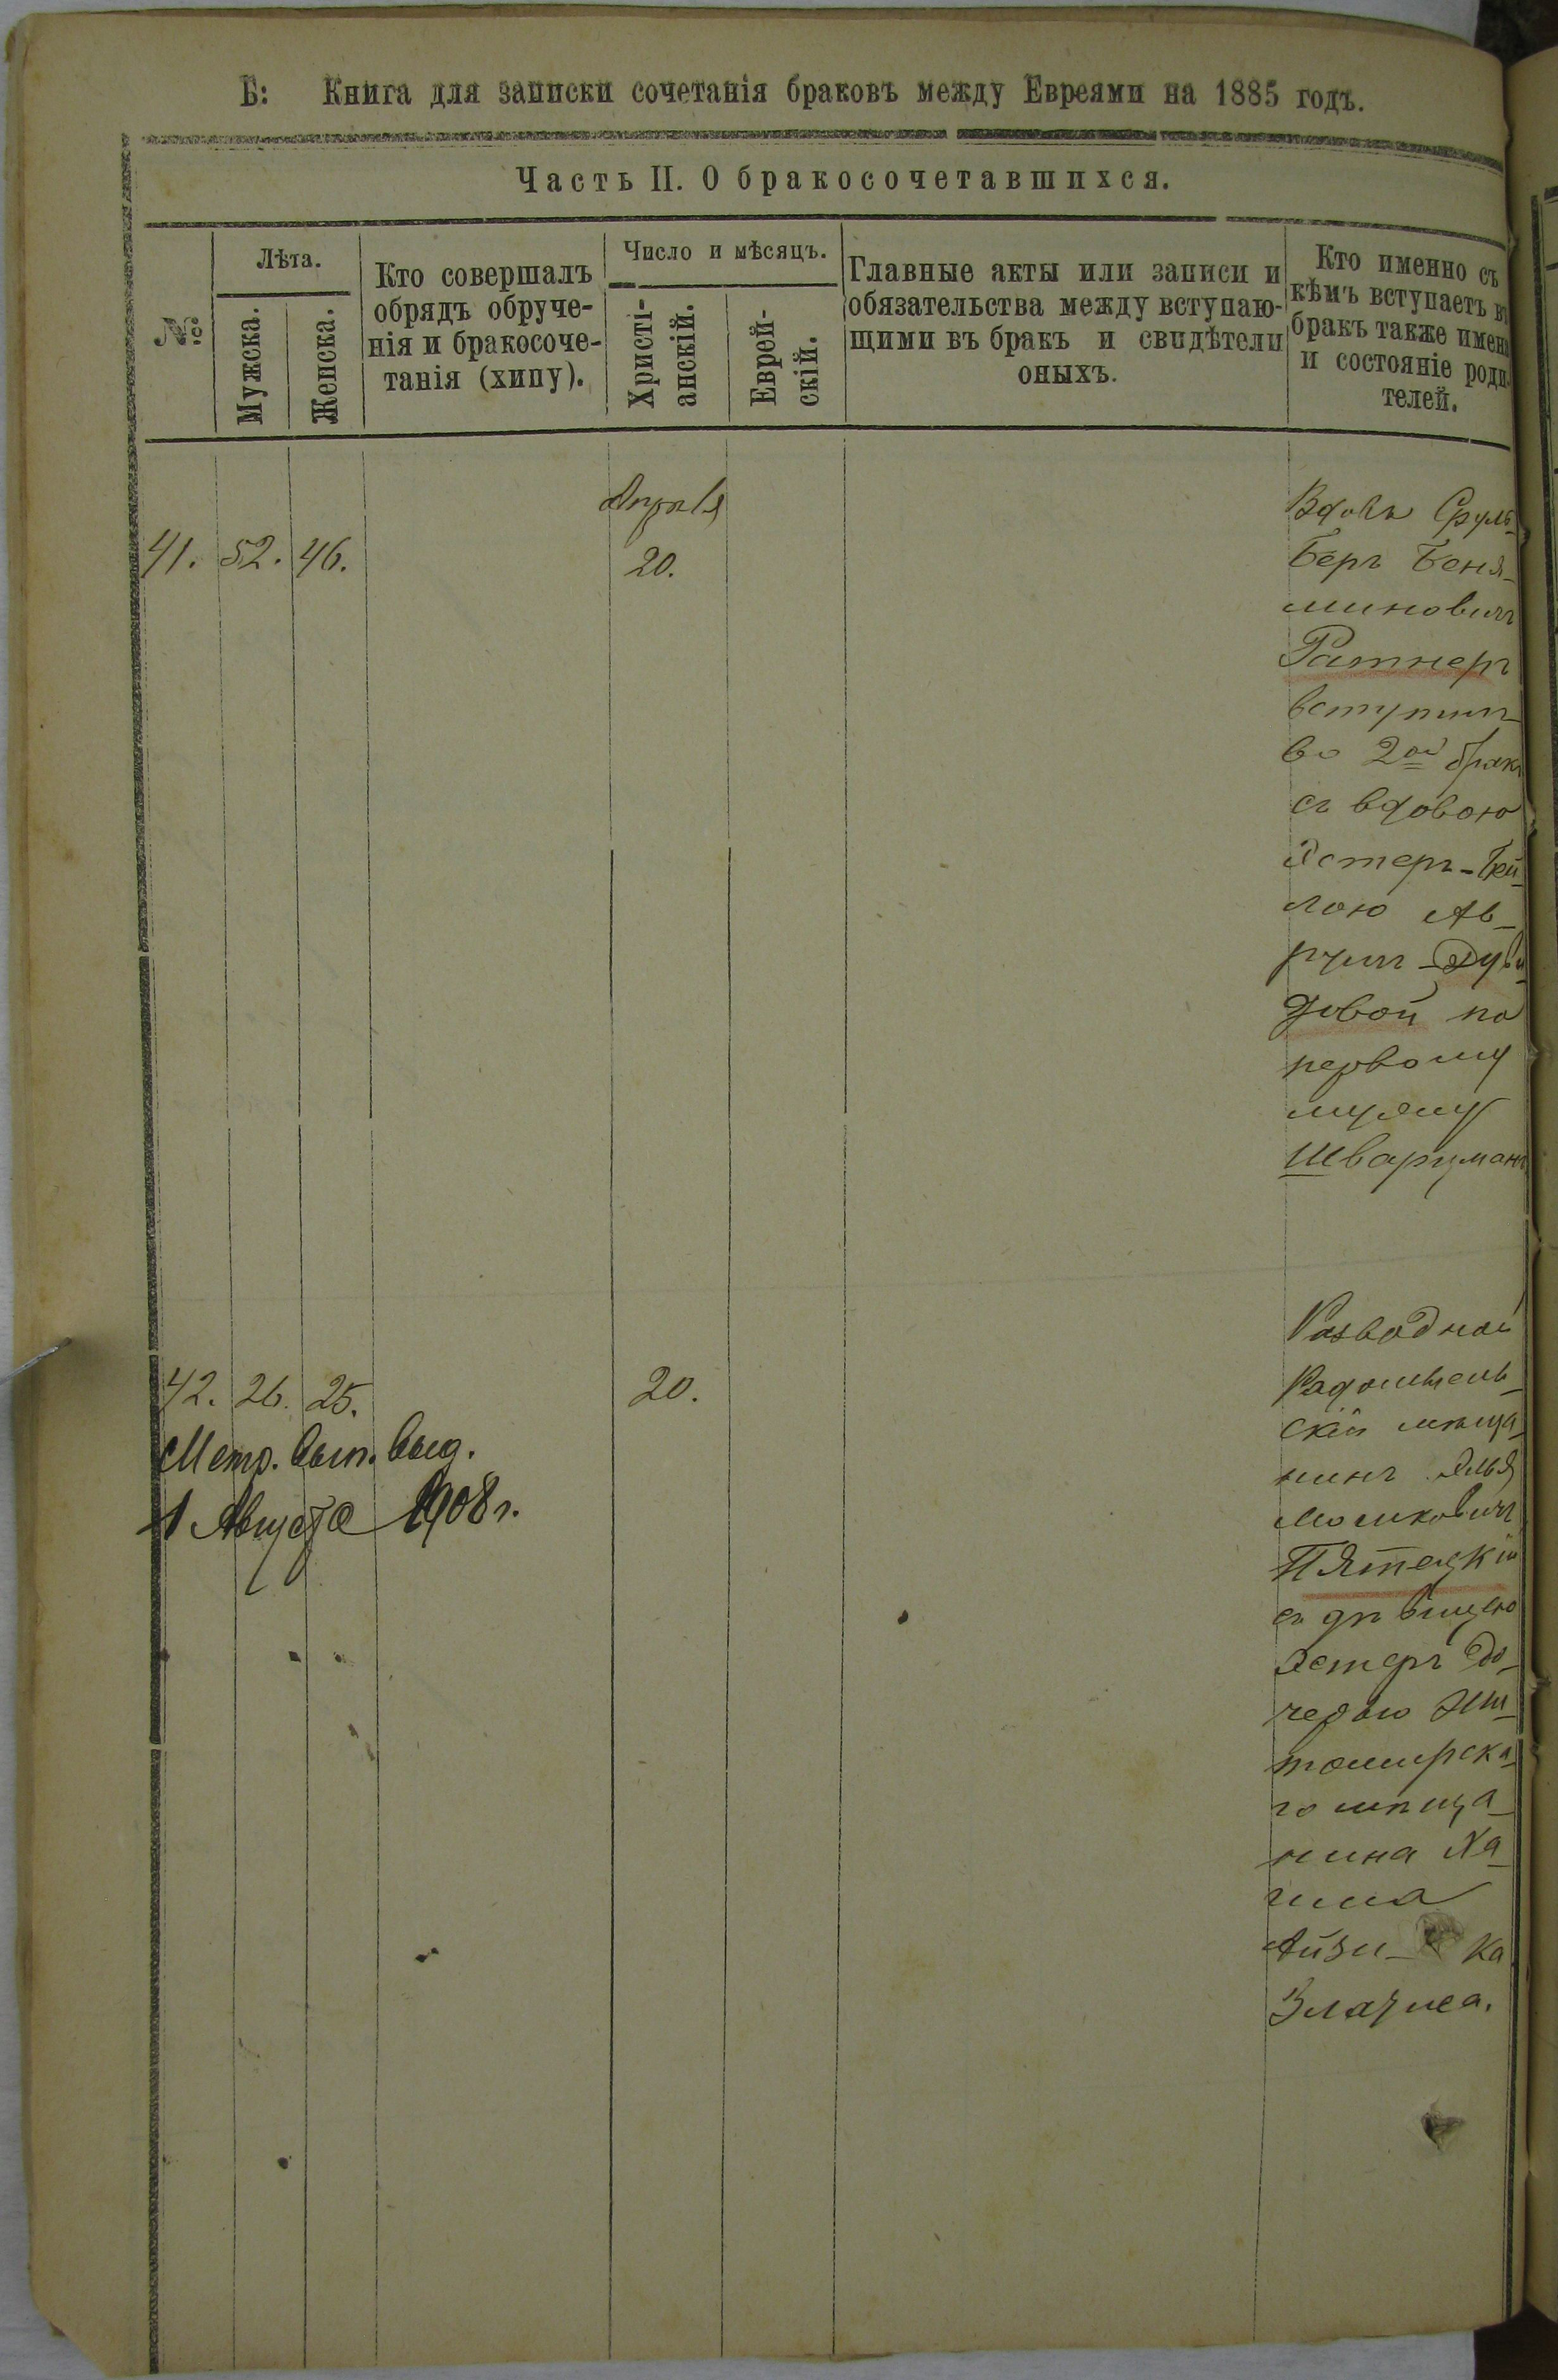 Б: Книга для записки сочетанія браковъ между Евреями на 1885 годъ.
Часть II. О бракосочетавшихся.
№
Лѣта.
Мужска.
Женска.
Кто совершалъ
обрядъ обруче-
нія и бракосоче-
танія (хипу).
Число и мѣсяцъ.
Христі-
анскій.
Еврей-
скій.
Главные акты или записи и
обязательства между вступаю-
щими въ бракъ и свидѣтели
оныхъ.
Кто именно съ
кѣмъ вступаетъ въ
бракъ также имена
и состояніе роди-
телей.
Апрѣля
41. 52. 46. 20.
Вдовъ Сруль-
Беръ Беня-
миновичъ
Ратнеръ
вступилъ
во 2ой бракъ
съ вдовою
Эстеръ-Бей-
лою Ав-
румъ-
довой по
первому
мужу
Шварцманъ
42. 26. 25. 20.
Метр. вып. выд.
1 Августа 1908 г.
Разводной
Радомысль-
скій мѣща-
нинъ Элья
Мошковичъ
Пятецкій
съ дѣвицею
Эстеръ до-
черью Жи-
томирска-
го мѣща-
нина Ха-
има
Айзи- ка